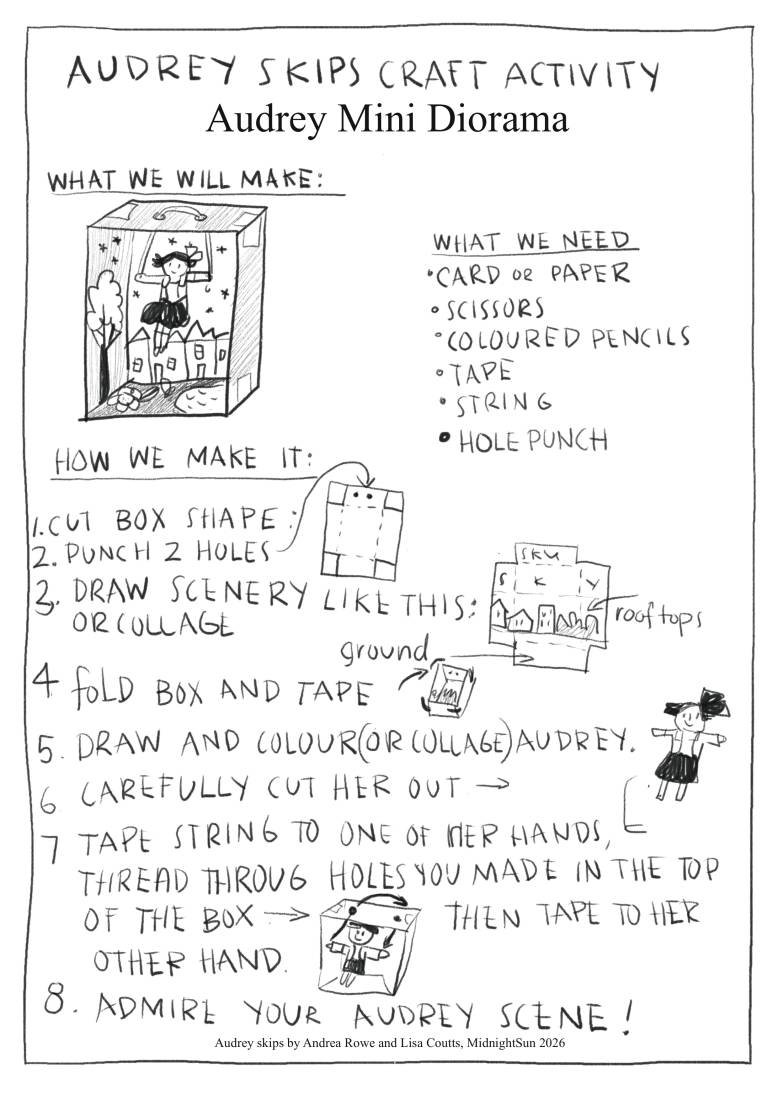 AUDREY SKIPS CRAFT ACTIVITY
Audrey Mini Diorama
WHAT WE WILL MAKE:
WHAT WE NEED
•CARD OR PAPER
•SCISSORS
•COLOURED PENCILS
•TAPE
•STRING
•HOLE PUNCH
HOW WE MAKE IT:
1. CUT BOX SHAPE:
2. PUNCH 2 HOLES
3. DRAW SCENERY LIKE THIS:
OR COLLAGE
SKY
S K Y
rooftops
ground
4 FOLD BOX AND TAPE
5. DRAW AND COLOUR (OR COLLAGE) AUDREY.
6 CAREFULLY CUT HER OUT →
7 TAPE STRING TO ONE OF HER HANDS,
THREAD THROUG HOLES YOU MADE IN THE TOP
OF THE BOX → THEN TAPE TO HER
OTHER HAND.
8. ADMIRE YOUR AUDREY SCENE!
Audrey skips by Andrea Rowe and Lisa Coutts, MidnightSun 2026